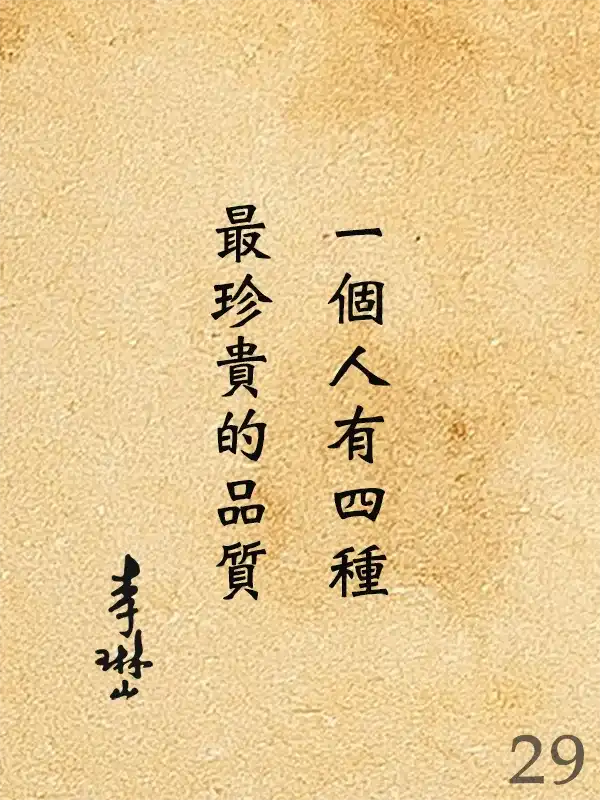 一個人有四種
最珍貴的品質
李琳山
29